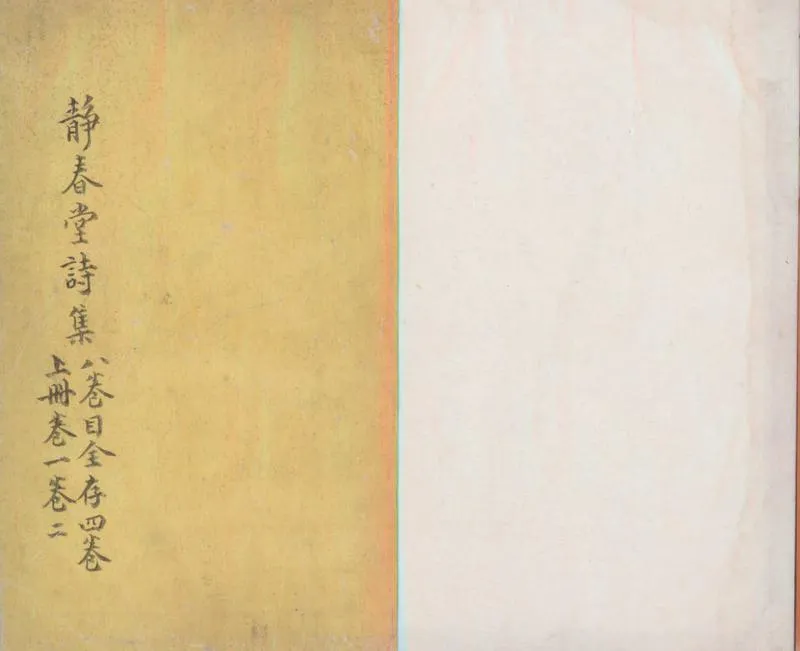 靜春堂詩集
八卷目全存四卷
上冊卷一卷二